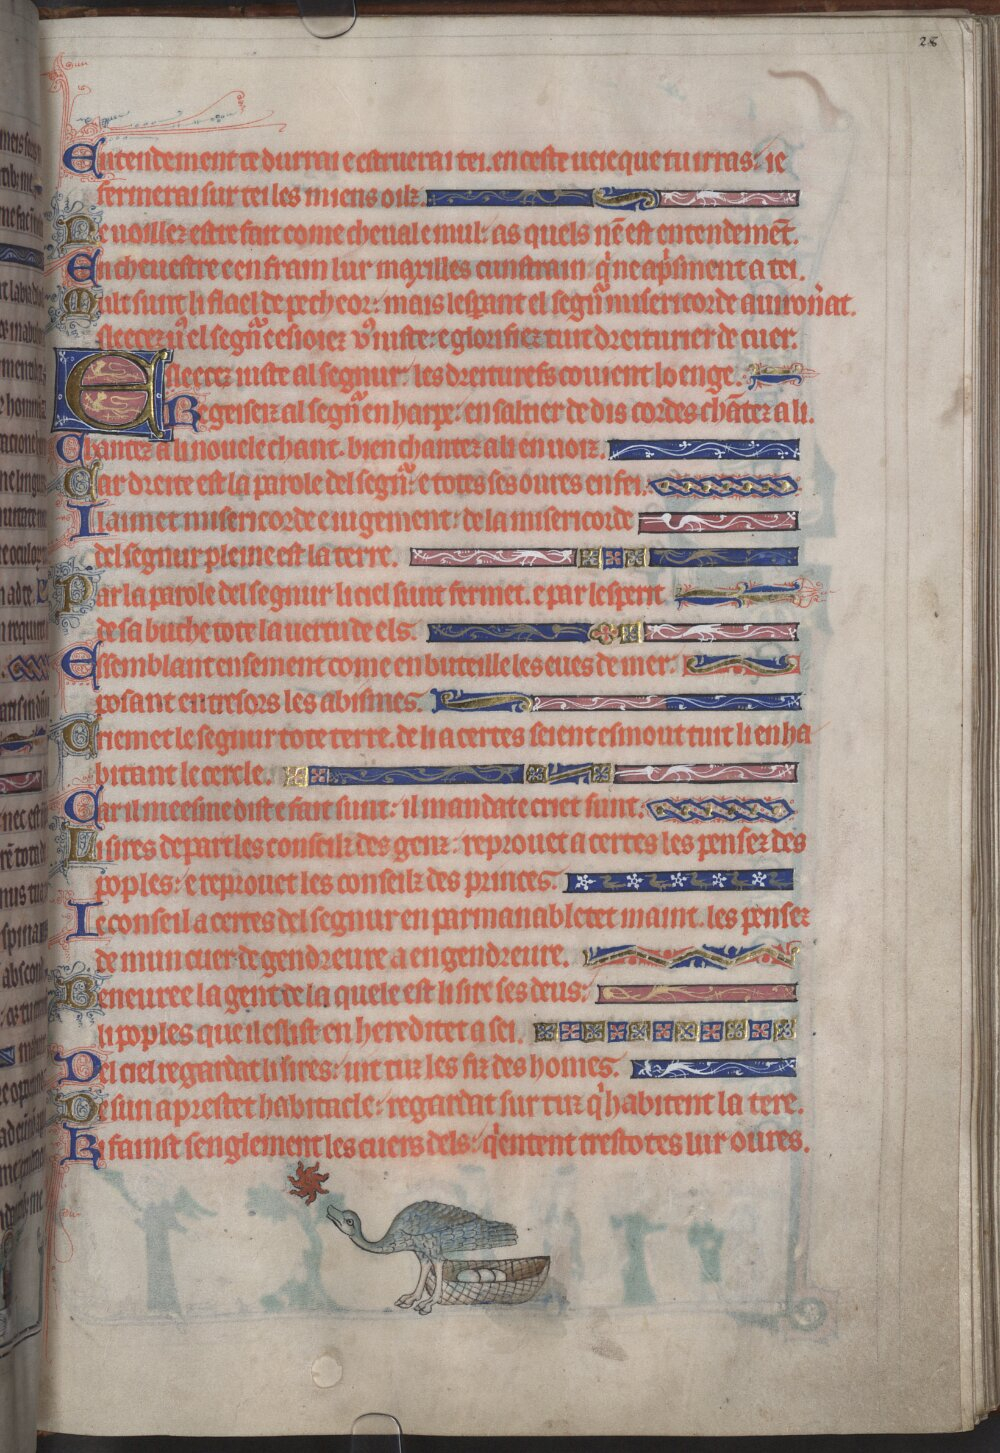 28
Entendement te durrai e estruerai tei. en ceste ueie que tu irras: ie
fermerai sur tei les miens oilz.
Ne uoillez estre fait come cheual e mul: as quels nē est entendemēt.
En cheuestre e en frain lur maxilles custrain q̾ ne ap̾sment a tei.
Mult sunt li flael de pecheor: mais lesp̾ant el segn̄ misericorde auironat.
el segn̄ e uiuste: e glorifiez tuit dreiturier de cuer.
Esleecez iuste al segnur: les dreitures couient loenge.
Regeisez al segn̄ en harpe: en saltier de dis cordes chātez a li.
Chantez a li nouele chant. bien chantez a li en uoiz.
Car dreite est la parole del segn̄: e totes ses oures en fei.
Il aimet misericorde e iugement: de la misericorde
del segnur pleine est la terre.
Par la parole del segnur li ciel sunt fermet. e par lesperit
de sa buche tote la uertu de els.
Essemblant ensement come en buteille les eues de mer.
posant en tresors les abismes.
Criemet le segnur tote terre. de li a certes seient esmout tuit li enha
bitant le cercle.
Car il meesme dist e fait sunt: il mandat e criet sunt.
Li sires depart les conseilz des genz: reprouet a certes les pensez des
poples: e reprouet les conseilz des princes.
Le conseil a certes del segnur en parmanabletet maint. les pensez
de mun cuer de gendreure a engendreure.
Beneuree la gent de la quele est li sire ses deus:
li poples que il eslist en hereditet a sei.
Del ciel regardat li sires: uit tuz les fiz des homes.
De sun aprestet habitacle: regardat sur tuz q̾ habitent la tere.
Ki fainst senglement les cuers dels: q̾ entent trestotes lur oures.